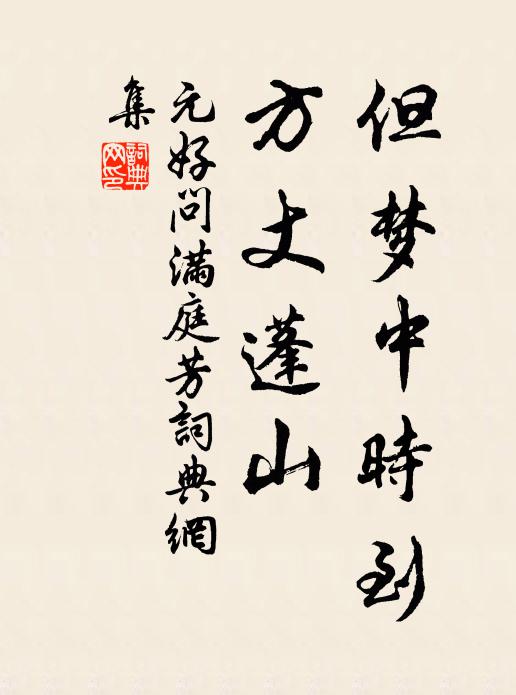 但梦中時到
方丈蓬山
元好問滿庭芳詞典網
集
詞典網印